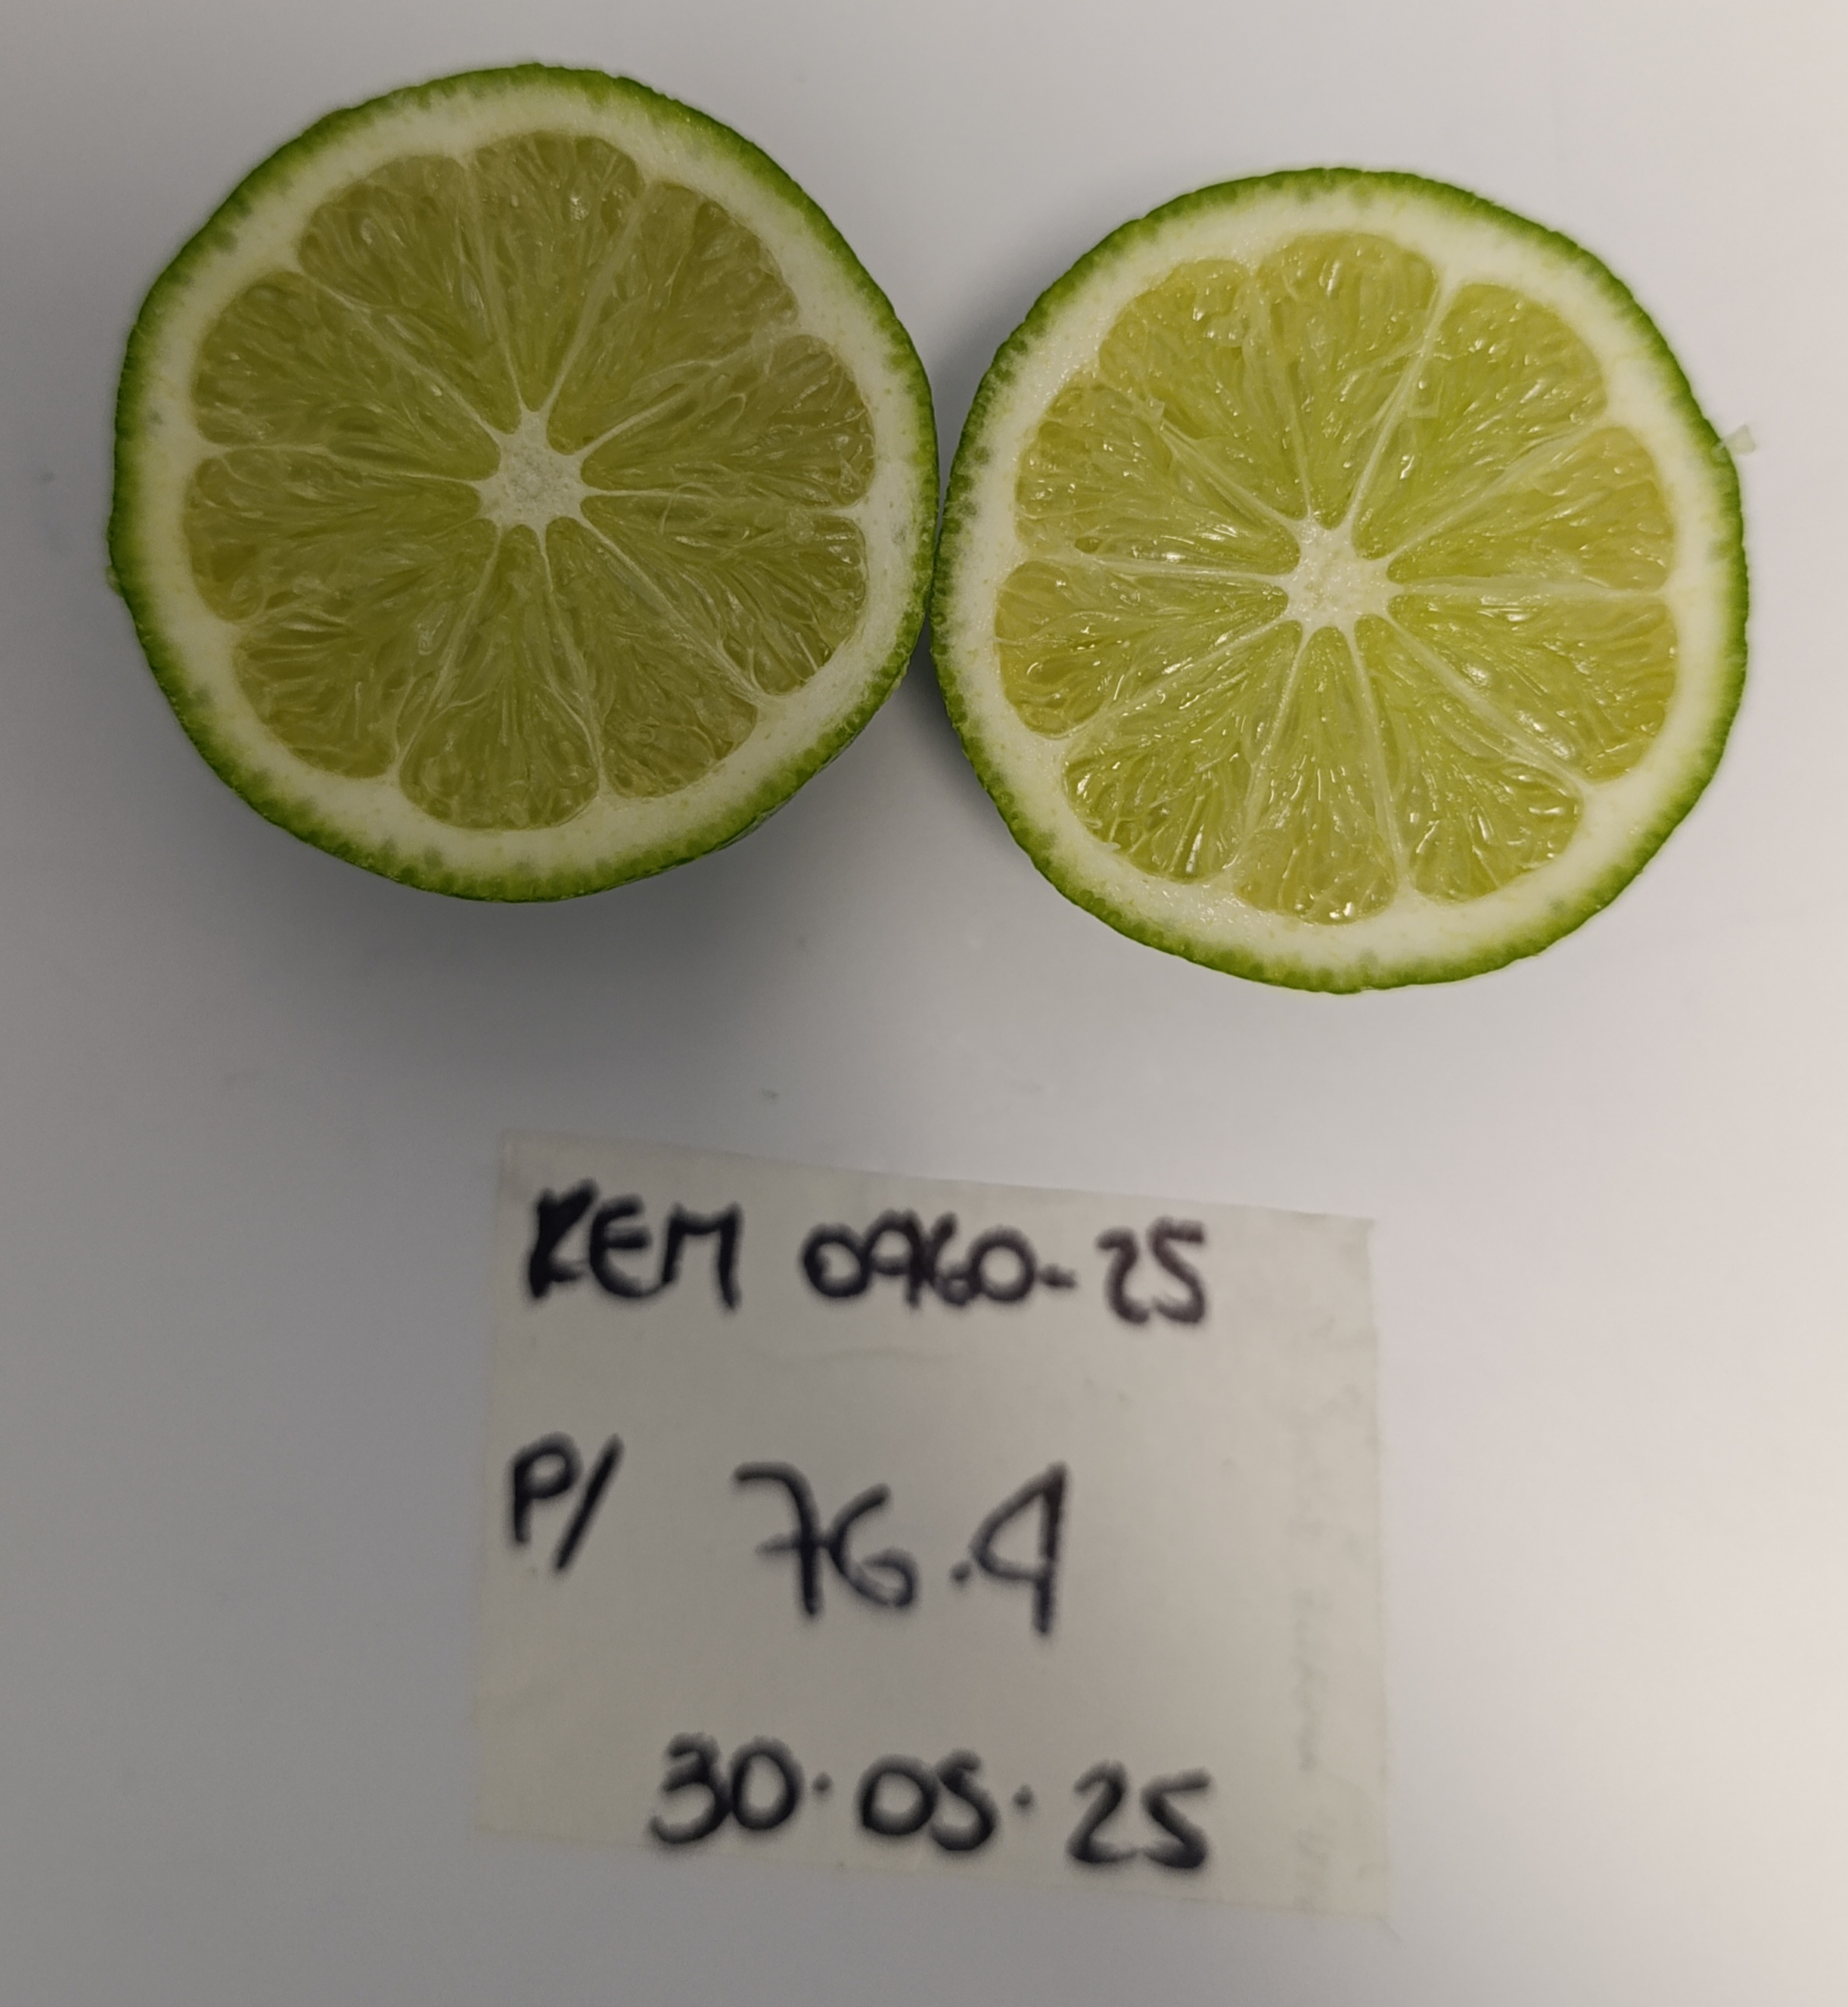 REM 0960-25
P/ 76.4
30.05.25